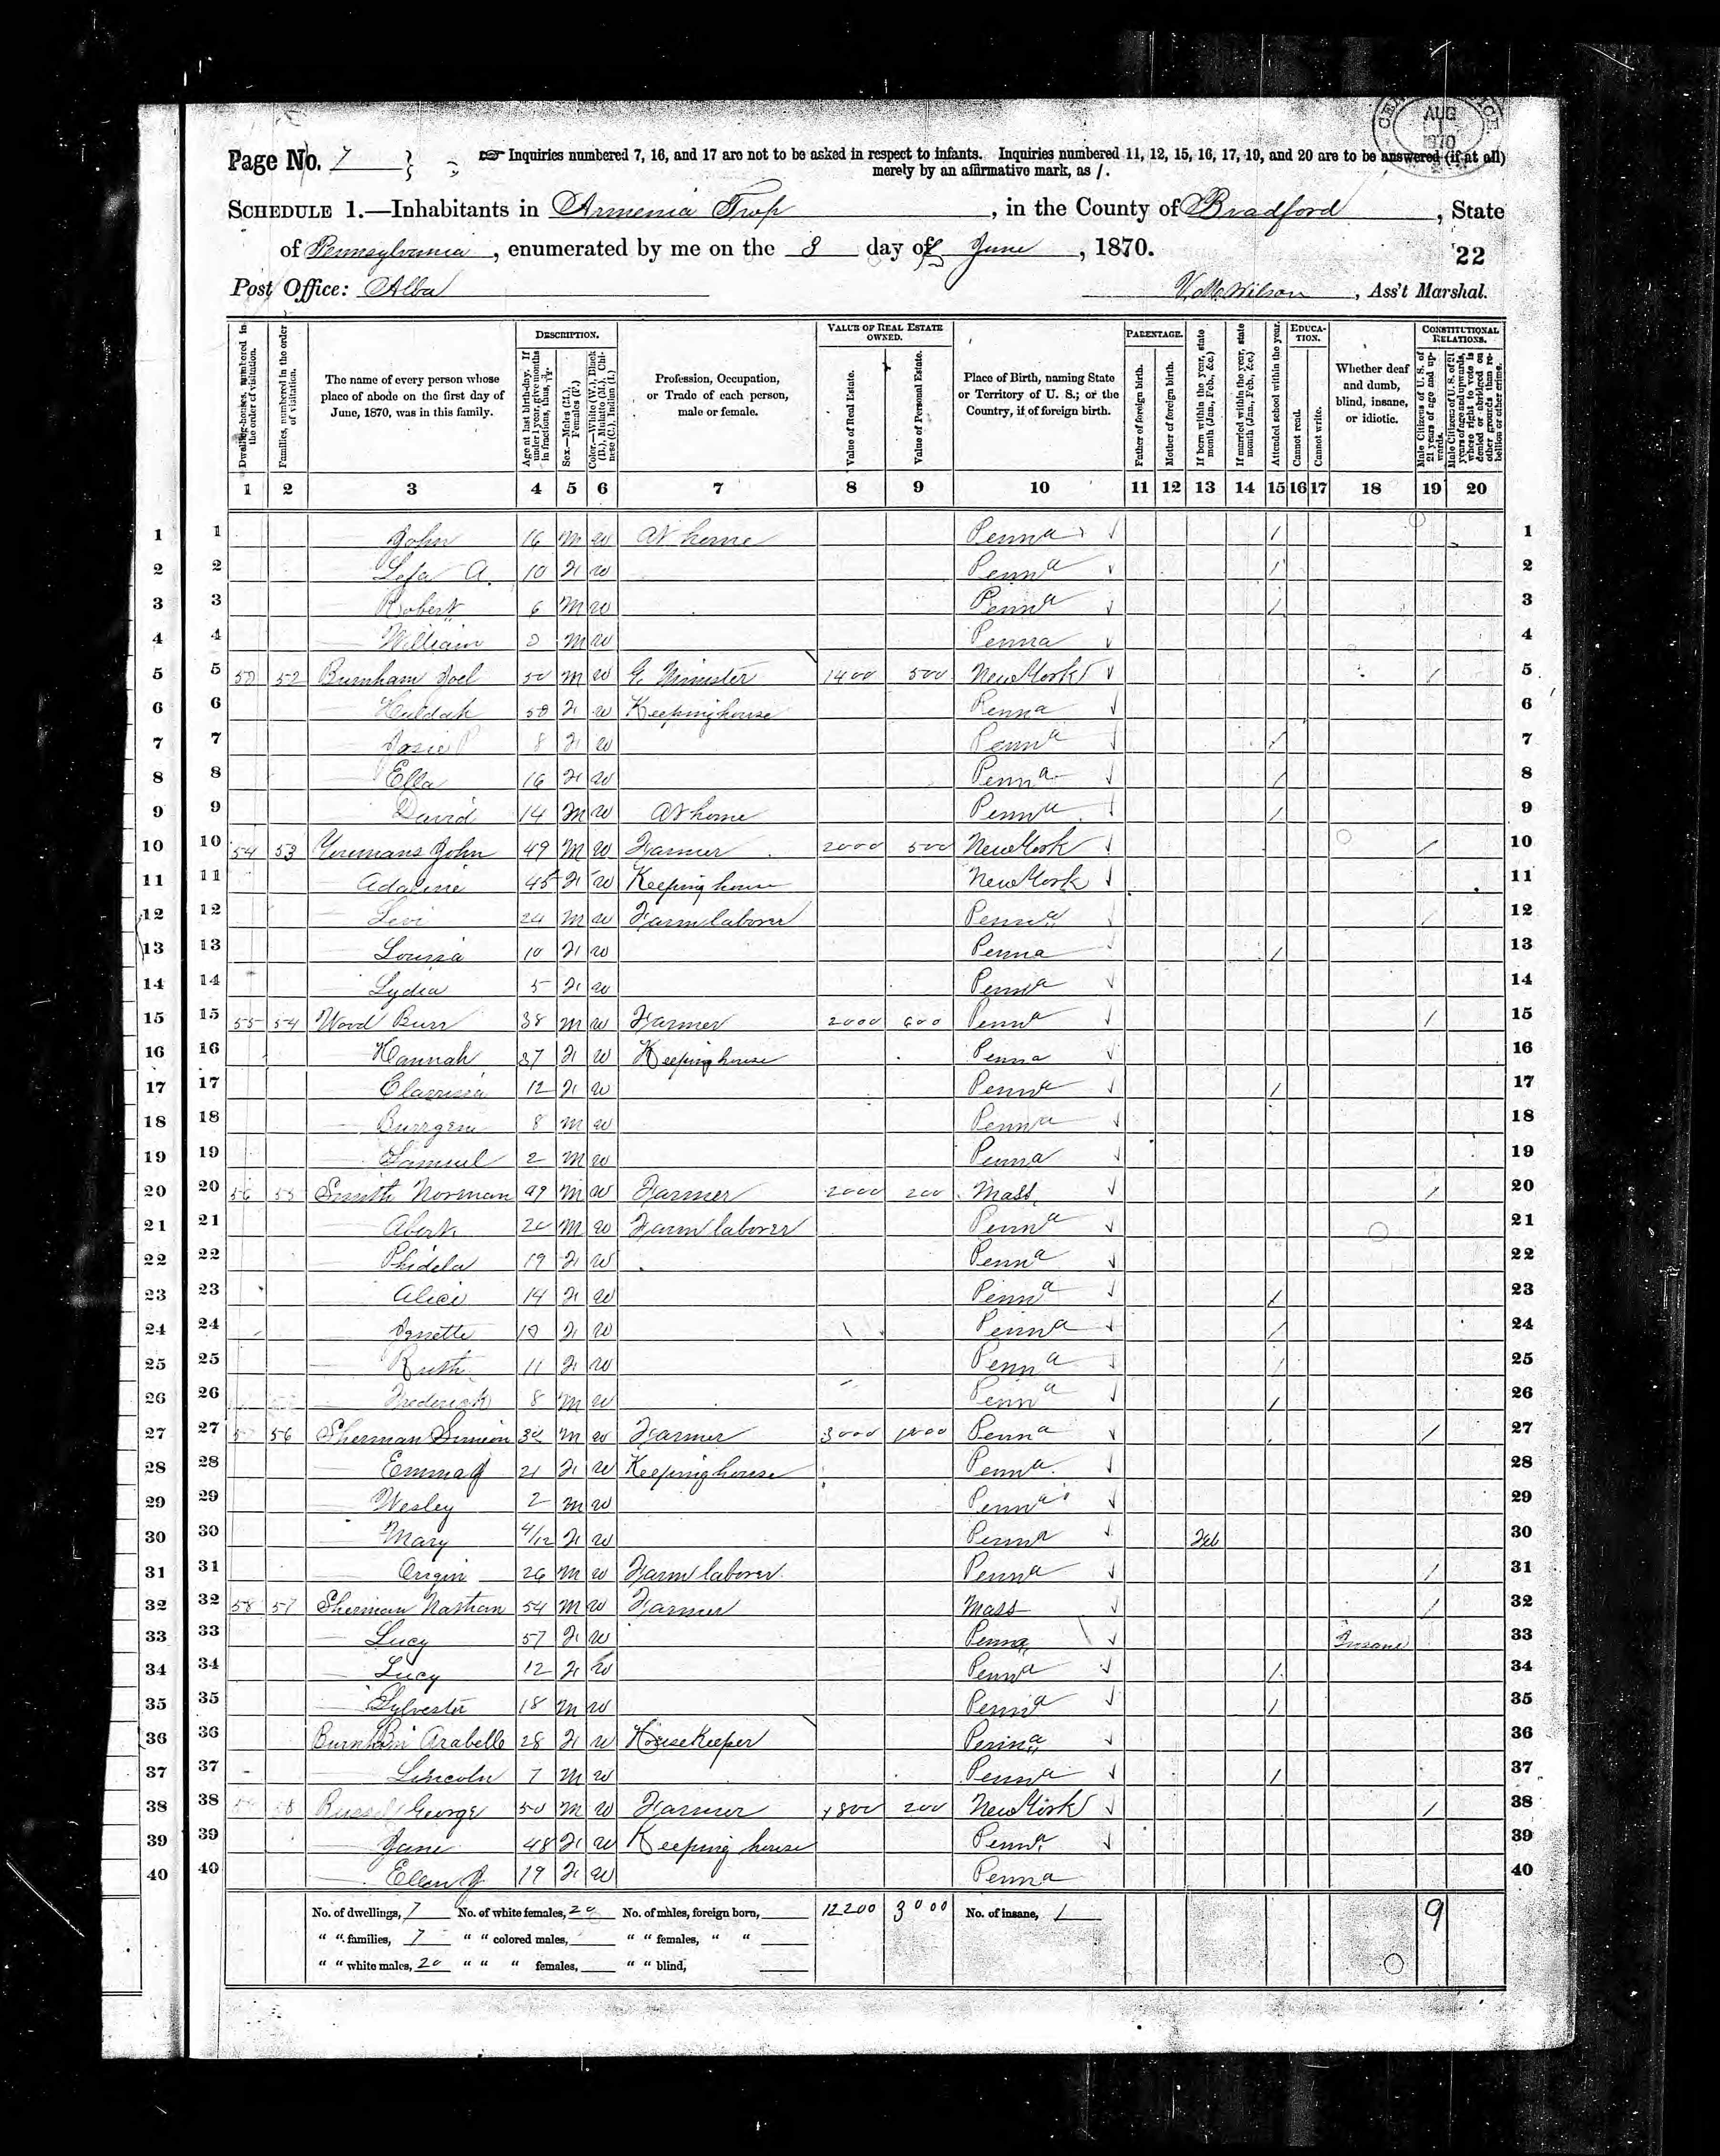 Page No. 7
Inquiries numbered 7, 16, and 17 are not to be asked in respect to infants. Inquiries numbered 11, 12, 15, 16, 17, 19, and 20 are to be answered (if at all)
merely by an affirmative mark, as /.
AUG
1
1870
SCHEDULE 1.—Inhabitants in Armenia Twp, in the County of Bradford, State
of Pennsylvania, enumerated by me on the 8 day of June, 1870.
22
Post Office: Alba
Wilson, Ass't Marshal.
Dwelling-houses, numbered in the order of visitation.
Families, numbered in the order of visitation.
The name of every person whose place of abode on the first day of June, 1870, was in this family.
DESCRIPTION.
Age at last birth-day. If under 1 year, give months in fractions, thus, 3/12.
Sex.—Males (M.), Females (F.)
Color.—White (W.), Black (B.), Mulatto (M.), Chinese (C.), Indian (I.)
Profession, Occupation, or Trade of each person, male or female.
VALUE OF REAL ESTATE OWNED.
Value of Real Estate.
Value of Personal Estate.
Place of Birth, naming State or Territory of U. S.; or the Country, if of foreign birth.
PARENTAGE.
Father of foreign birth.
Mother of foreign birth.
If born within the year, state month (Jan., Feb., &c.)
If married within the year, state month (Jan., Feb., &c.)
Attended school within the year.
EDUCATION.
Cannot read.
Cannot write.
Whether deaf and dumb, blind, insane, or idiotic.
CONSTITUTIONAL RELATIONS.
Male Citizens of U. S. of 21 years of age and upwards.
Male Citizens of U. S. of 21 years of age and upwards, where right to vote is denied or abridged on other grounds than rebellion or other crime.
1 2 3 4 5 6 7 8 9 10 11 12 13 14 15 16 17 18 19 20
1 1 John 16 M W At home Penna / 1
2 2 A. 10 F W Penna / 2
3 3 Robert 6 M W Penna / 3
4 4 William M W Penna 4
5 5 52 Burnham Joel 50 M W Minister 1400 500 New York / 5
6 6 Huldah 50 F W Keeping house Penna 6
7 7 8 F W Penna / 7
8 8 Ella 16 F W Penna / 8
9 9 David 14 M W At home Penna / 9
10 10 54 53 Youmans John 49 M W Farmer 2000 500 New York / 10
11 11 Adaline 45 F W Keeping house New York 11
12 12 Levi 24 M W Farm laborer Penna / 12
13 13 Louisa 10 F W Penna / 13
14 14 Lydia 5 F W Penna 14
15 15 55 54 Wood Burr 38 M W Farmer 2000 600 Penna / 15
16 16 Hannah 37 F W Keeping house Penna 16
17 17 Clarissa 12 F W Penna / 17
18 18 8 M W Penna 18
19 19 Samuel 2 M W Penna 19
20 20 56 55 Smith Norman 49 M W Farmer 2000 200 Mass / 20
21 21 Albert 20 M W Farm laborer Penna 21
22 22 Phidela 19 F W Penna 22
23 23 Alice 14 F W Penna / 23
24 24 F W Penna / 24
25 25 Ruth 11 F W Penna / 25
26 26 Frederick 8 M W Penna / 26
27 27 56 Sherman Simeon M W Farmer 3000 1000 Penna / 27
28 28 Emma J 21 F W Keeping house Penna 28
29 29 Wesley 2 M W Penna 29
30 30 Mary 4/12 F W Penna Feb 30
31 31 Origin 26 M W Farm laborer Penna / 31
32 32 58 57 Sherman Nathan 54 M W Farmer Mass / 32
33 33 Lucy 57 F W Penna Insane 33
34 34 Lucy 12 F W Penna / 34
35 35 Sylvester 18 M W Penna / 35
36 36 Arabelle 28 F W Housekeeper Penna 36
37 37 Lincoln 7 M W Penna / 37
38 38 58 Russel George 50 M W Farmer 1800 200 New York / 38
39 39 Jane 48 F W Keeping house Penna 39
40 40 Ellen J 19 F W Penna 40
No. of dwellings, 7 No. of white females, 20 No. of males, foreign born, 12200 3000 No. of insane, 1 9
" " families, 7 " " colored males, " " females, " "
" " white males, 20 " " " females, " " blind,